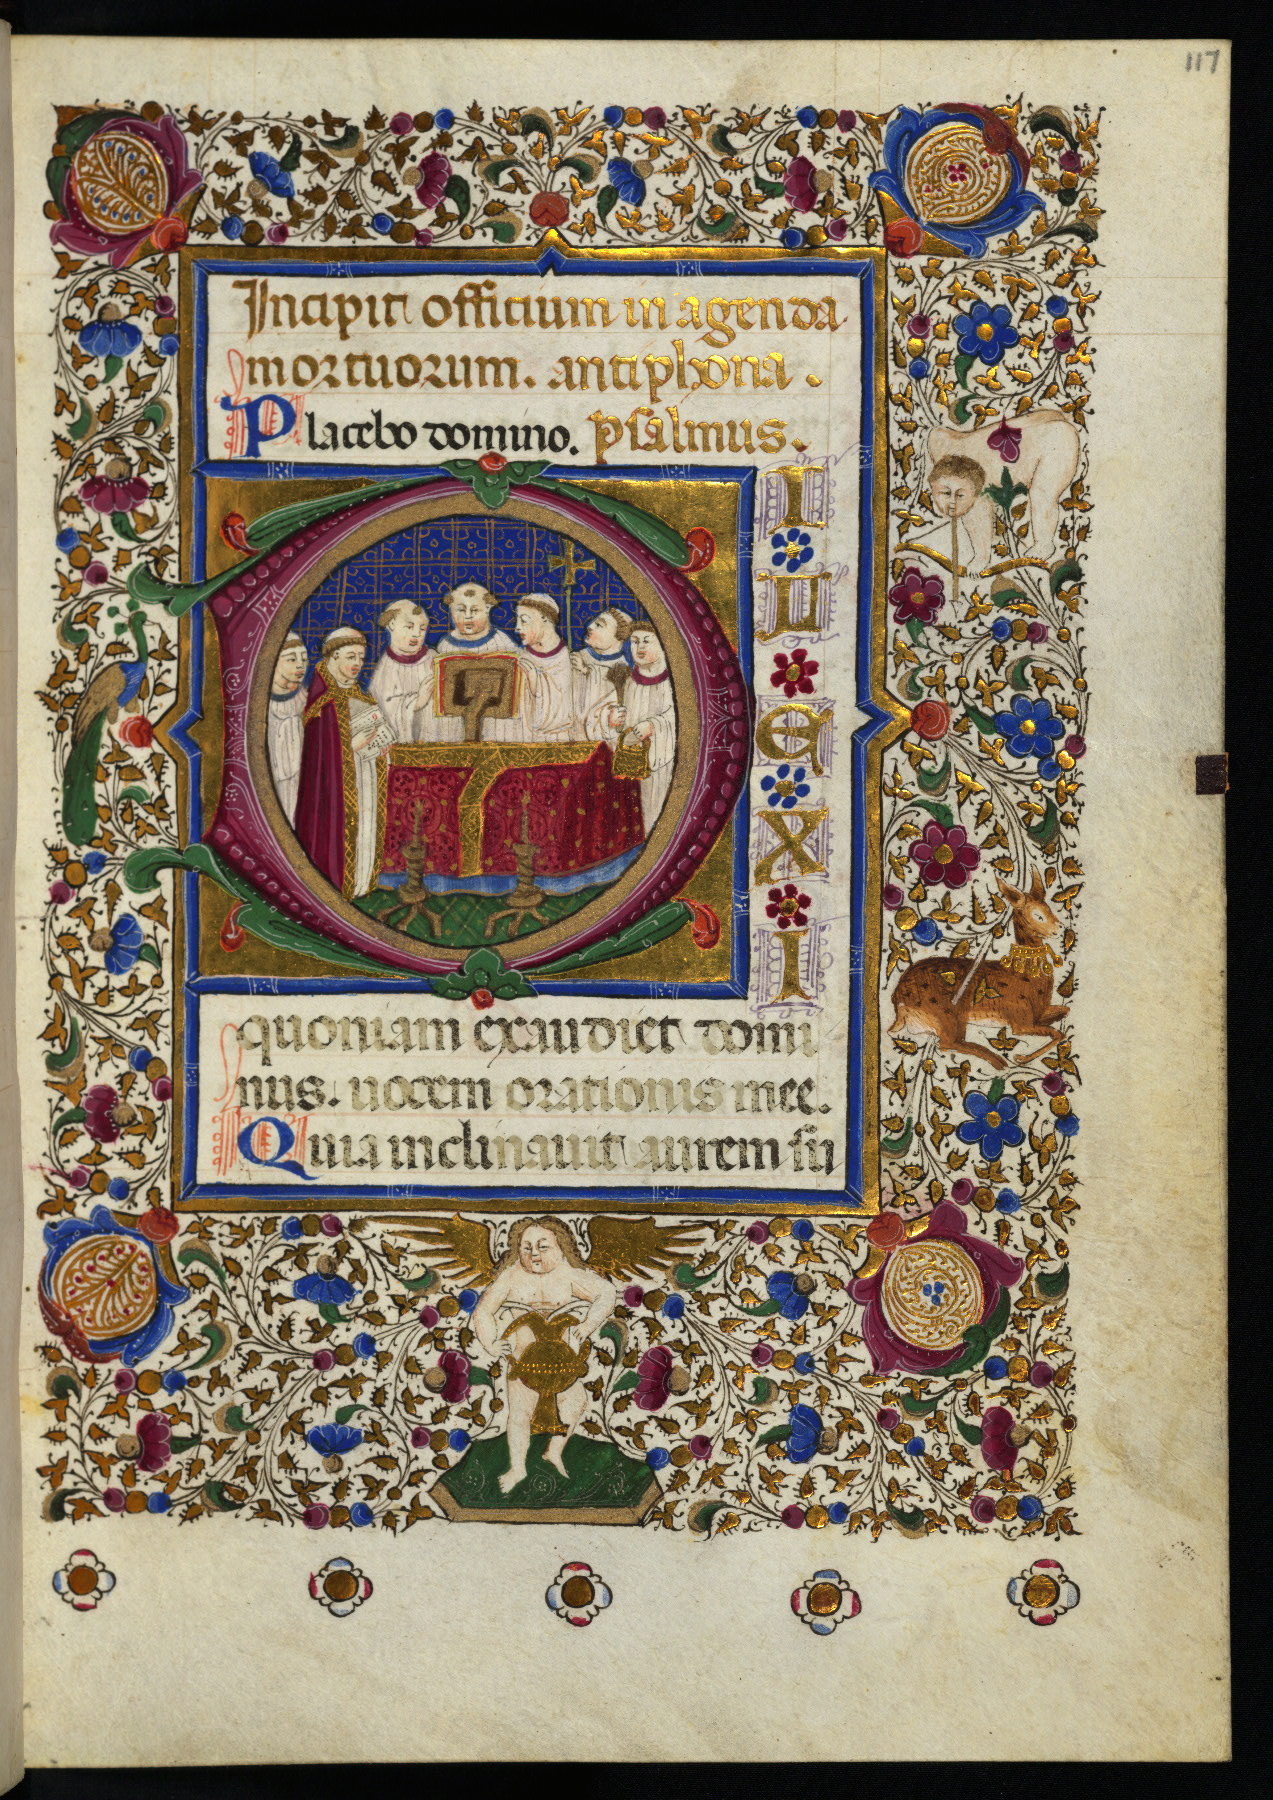 117
Incipit officium in agenda
mortuorum. antiphona.
Placebo domino. psalmus.
DILEXI
quoniam exaudiet domi
nus. uocem orationis mee.
Quia inclinauit aurem su